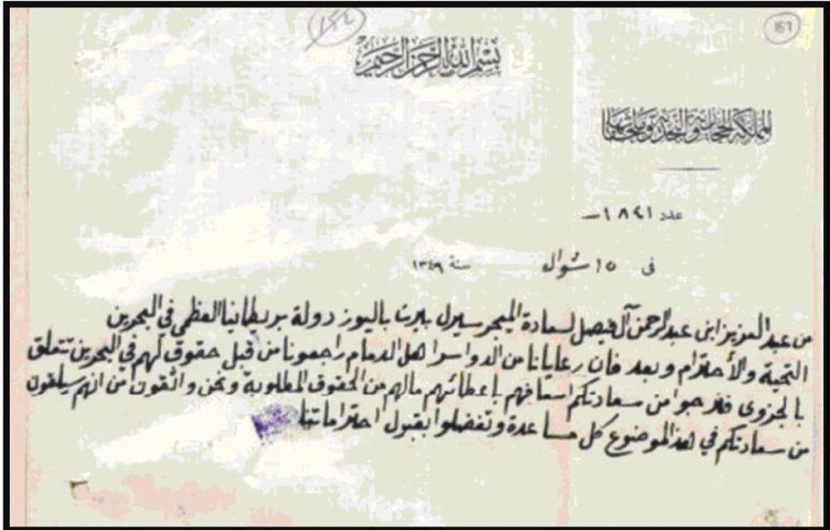 ١٥٦
بسم الله الرحمن الرحيم
المملكة الحجازية والنجدية وملحقاتها
عدد ١٨٢١
في ١٥ شوال سنة ١٣٤٩
من عبد العزيز ابن عبد الرحمن آل فيصل لسعادة الميجر سيرل باليوز دولة بريطانيا العظمى في البحرين
التحية والأحترام وبعد فان رعايانا من الدواسر اهل الدمام راجعونا من قبل حقوق لهم في البحرين تتعلق
فنرجوا من سعادتكم اسعافهم باعطائهم مالهم من الحقوق المطلوبة ونحن واثقون من انهم سيلقون
من سعادتكم في هذالموضوع كل مساعدة وتفضلوا بقبول احتراماتنا